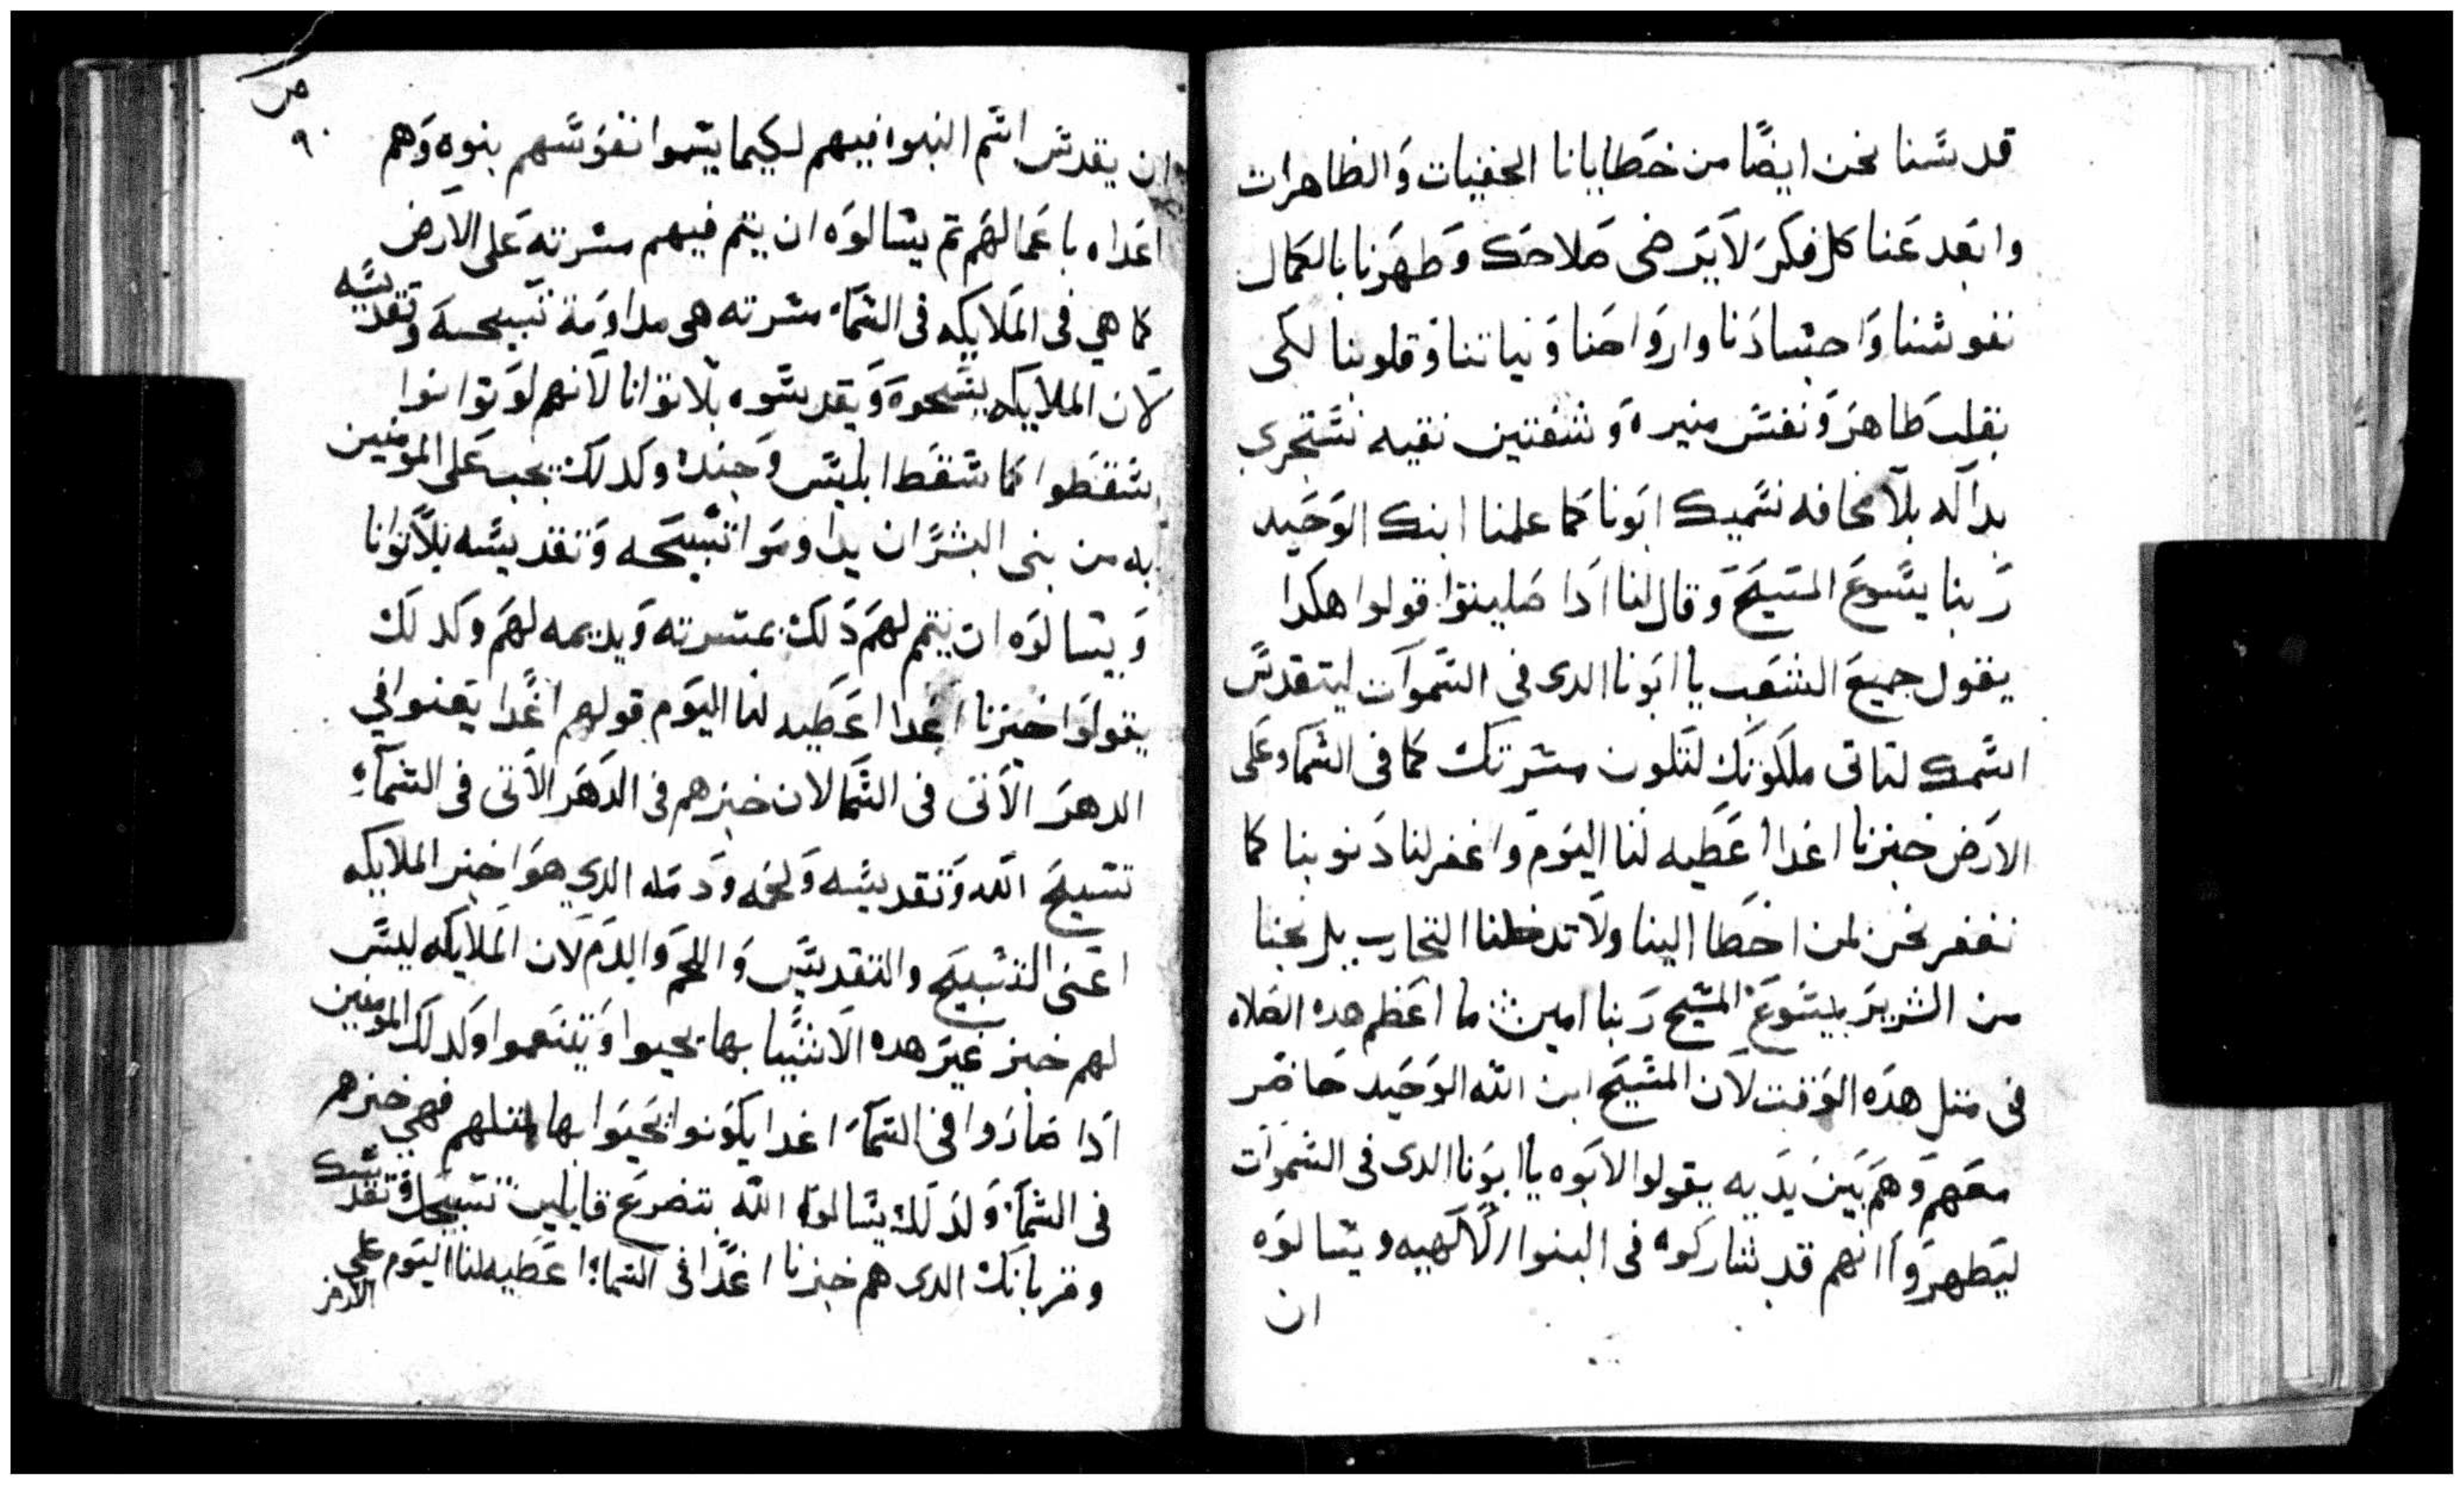 قدسنا نحن ايضًا من خطايانا الخفيات والظاهرات
وابعد عنا كل فكر لا يرضى صلاحك وطهرنا بالكمال
نفوسنا واجسادنا وارواحنا ونياتنا وقلوبنا لكى
بقلب طاهر ونفس منيره وشفتين نقيه نستجرى
بداله بلا مخافه نسميك ابونا كما علمنا ابنك الوحيد
ربنا يسوع المسيح وقال لنا ادا صليتوا قولوا هكدا
يقول جميع الشعب يا ابونا الدى فى السموات ليتقدس
اسمك لتاتى ملكوتك لتكون مسرتك كما فى السما وعلى
الارض خبزنا اغدا اعطيه لنا اليوم واغفر لنا دنوبنا كما
نغفر نحن لمن اخطا الينا ولا تدخلنا التجارب بل نجنا
من الشرير بيسوع المسيح ربنا امين ما اعظم هده الصلاه
فى متل هده الوقت لان المسيح ابن الله الوحيد حاضر
معهم وهم بين يديه يقولوا لابوه يا ابونا الدى فى السموات
ليطهروا انهم قد شاركوه فى البنوا الالاهيه ويسالوه
ان
٩٠
ان يقدس اسم البنوا فيهم لكيما يسموا نفوسهم بنوه وهم
اعداه باعمالهم تم يسالوه ان يتم فيهم مسرته على الارض
كما هي فى الملايكه فى السماء مسرته هى مداومة تسبيحه وتقديسه
لان الملايكه يسبحوه ويقدسوه بلا توانا لانهم لو توانوا
سقطوا كما سقط ابليس وجنده وكدلك يجب على المومنين
به من بنى البشر ان يداوموا تسبيحه وتقديسه بلا توانا
ويسالوه ان يتم لهم دلك بمسرته ويديمه لهم وكدلك
يقولوا خبزنا اغدا اعطيه لنا اليوم قولهم اغدا يعنوا في
الدهر الاتى فى السما لان خبزهم فى الدهر الاتى فى السماء
تسبيح الله وتقديسه ولحمه ودمه الدي هوا خبز الملايكه
اعنى التسبيح والتقديس واللحم والدم لان الملايكه ليس
لهم خبز غير هده الاشيا بها يحيوا ويتنعموا وكدلك المومنين
ادا صاروا فى السماء اغدا يكونوا يحيوا بها متلهم فهي خبزهم
فى السماء ولدلك يسالوا الله بتضرع قايلين تسبيحك وتقديسك
وقربانك الدى هم خبزنا اغدًا فى السماء اعطيه لنا اليوم على
الارض